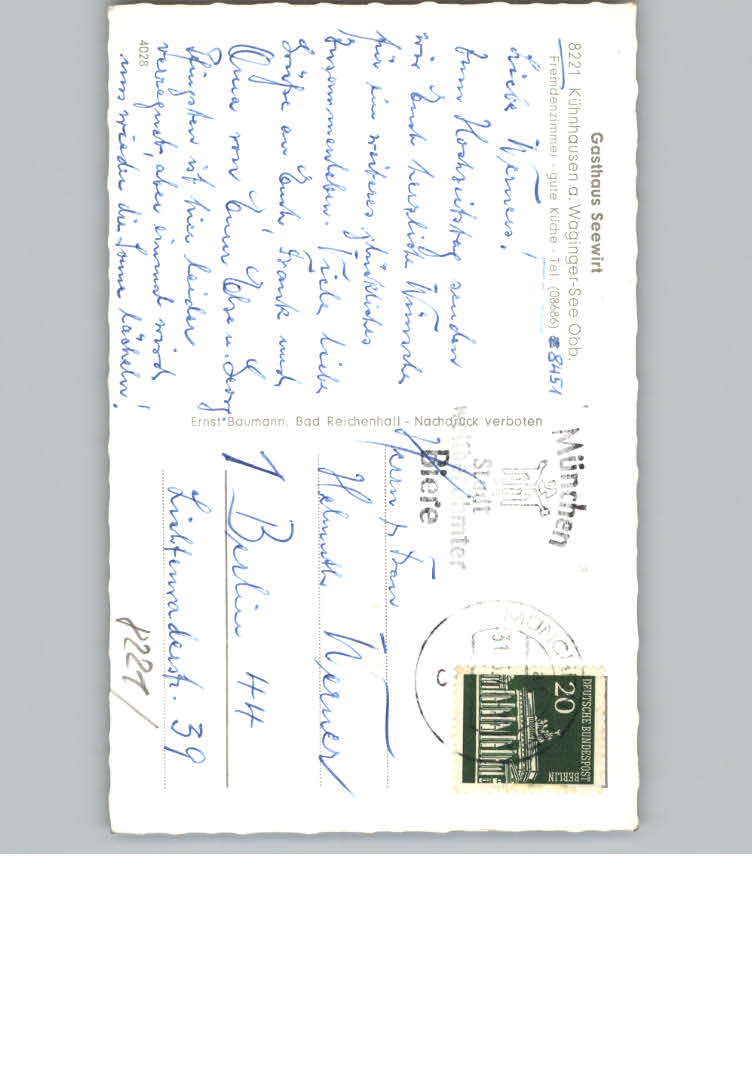 Gasthaus Seewirt
8221 Kühnhausen a. Waginger-See Obb.
Fremdenzimmer - gute Küche - Tel. (08686) 8451
Liebe Werners!
Zum Hochzeitstag senden
wir Euch herzliche Wünsche
für ein weiteres glückliches
Zusammenleben. Viele liebe
Grüße an Euch, Frank und
Oma von Eurer Else u. Georg
Pfingsten ist hier leider
verregnet, aber einmal wird
uns wieder die Sonne lächeln!
4028
Ernst Baumann, Bad Reichenhall - Nachdruck verboten
München
Stadt
Biere
MÜNCH
31
DEUTSCHE BUNDESPOST
BERLIN
20
Herrn u. Frau
Helmuth Werner
1 Berlin 44
Lichtenraderstr. 39
8221/